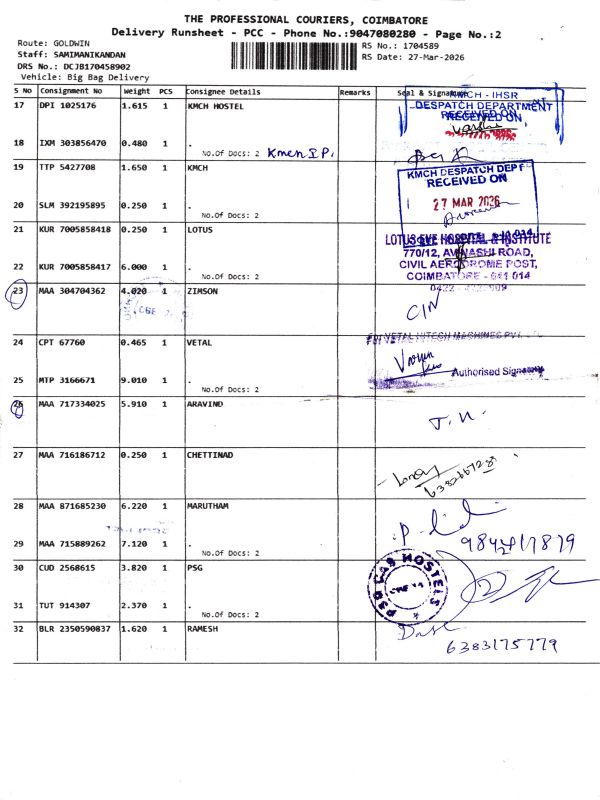 THE PROFESSIONAL COURIERS, COIMBATORE
Delivery Runsheet - PCC - Phone No.:9047080280 - Page No.:2
Route: GOLDWIN
Staff: SAMIMANIKANDAN
DRS No.: DCJB170458902
Vehicle: Big Bag Delivery
RS No.: 1704589
RS Date: 27-Mar-2026
S No Consignment No Weight PCS Consignee Details Remarks Seal & Signature
17 DPI 1025176 1.615 1 KMCH HOSTEL
KMCH - IHSR
DESPATCH DEPARTMENT
RECEIVED ON
18 IXM 303856470 0.480 1 .
No.Of Docs: 2
19 TTP 5427708 1.650 1 KMCH
KMCH DESPATCH DEPT
RECEIVED ON
27 MAR 2026
20 SLM 392195895 0.250 1 .
No.Of Docs: 2
21 KUR 7005858418 0.250 1 LOTUS
LOTUS EYE HOSPITAL & INSTITUTE
770/12, AVINASHI ROAD,
CIVIL AERODROME POST,
COIMBATORE - 641 014
22 KUR 7005858417 6.000 1 .
No.Of Docs: 2
23 MAA 304704362 4.020 1 ZIMSON
24 CPT 67760 0.465 1 VETAL
Authorised Signatory
25 MTP 3166671 9.010 1 .
No.Of Docs: 2
26 MAA 717334025 5.910 1 ARAVIND
27 MAA 716186712 0.250 1 CHETTINAD
28 MAA 871685230 6.220 1 MARUTHAM
29 MAA 715889262 7.120 1 .
No.Of Docs: 2
30 CUD 2568615 3.820 1 PSG
PSG CAS HOSTELS
31 TUT 914307 2.370 1 .
No.Of Docs: 2
32 BLR 2350590837 1.620 1 RAMESH
6383175779